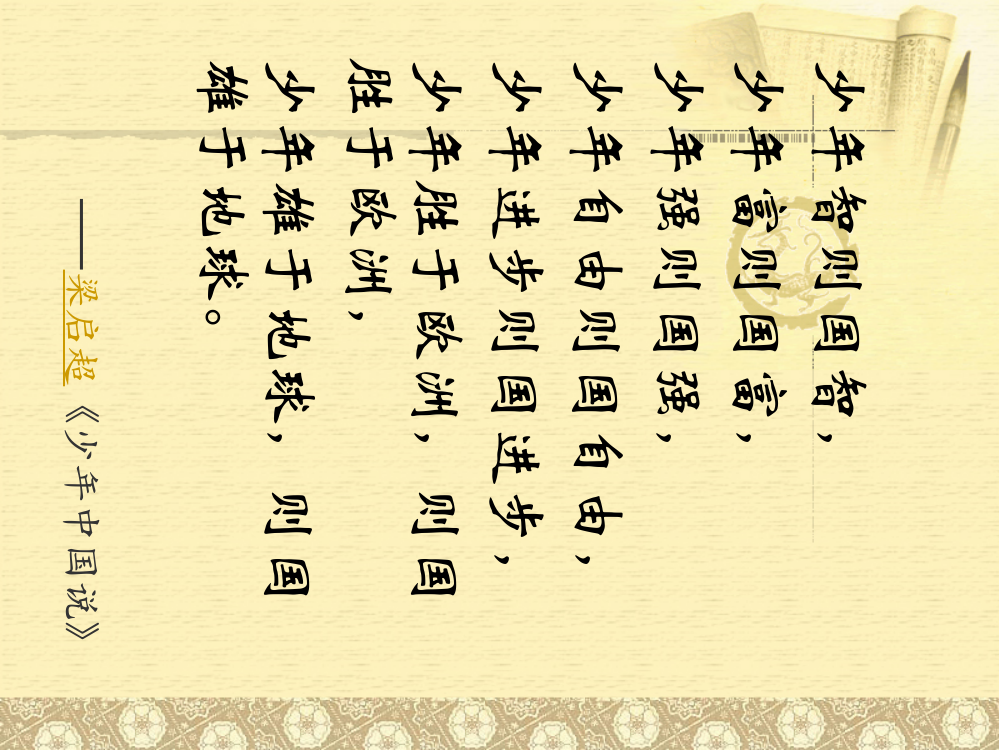 少年智则国智，
少年富则国富，
少年强则国强，
少年自由则国自由，
少年进步则国进步，
少年胜于欧洲，则国
胜于欧洲，
少年雄于地球，则国
雄于地球。
——梁启超《少年中国说》